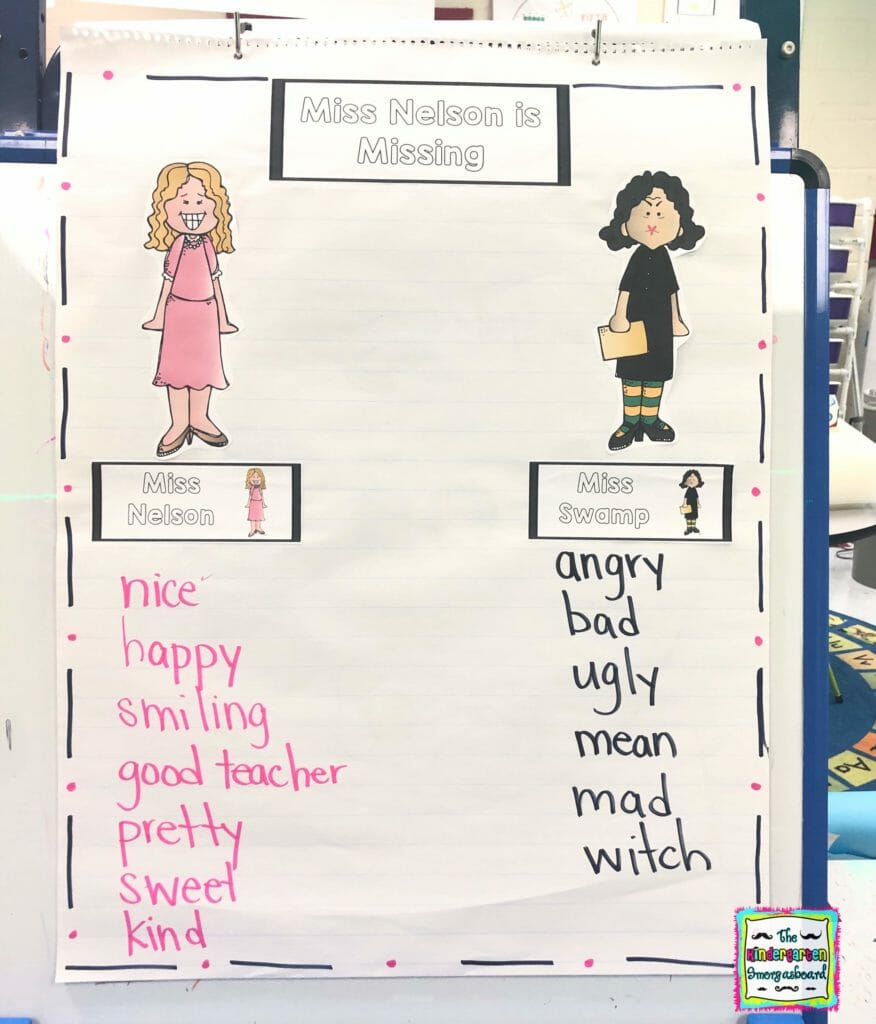 Miss Nelson is
Missing
Miss
Nelson
nice
happy
smiling
good teacher
pretty
sweet
kind
Miss
Swamp
angry
bad
ugly
mean
mad
witch
The
Kindergarten
Smorgasboard